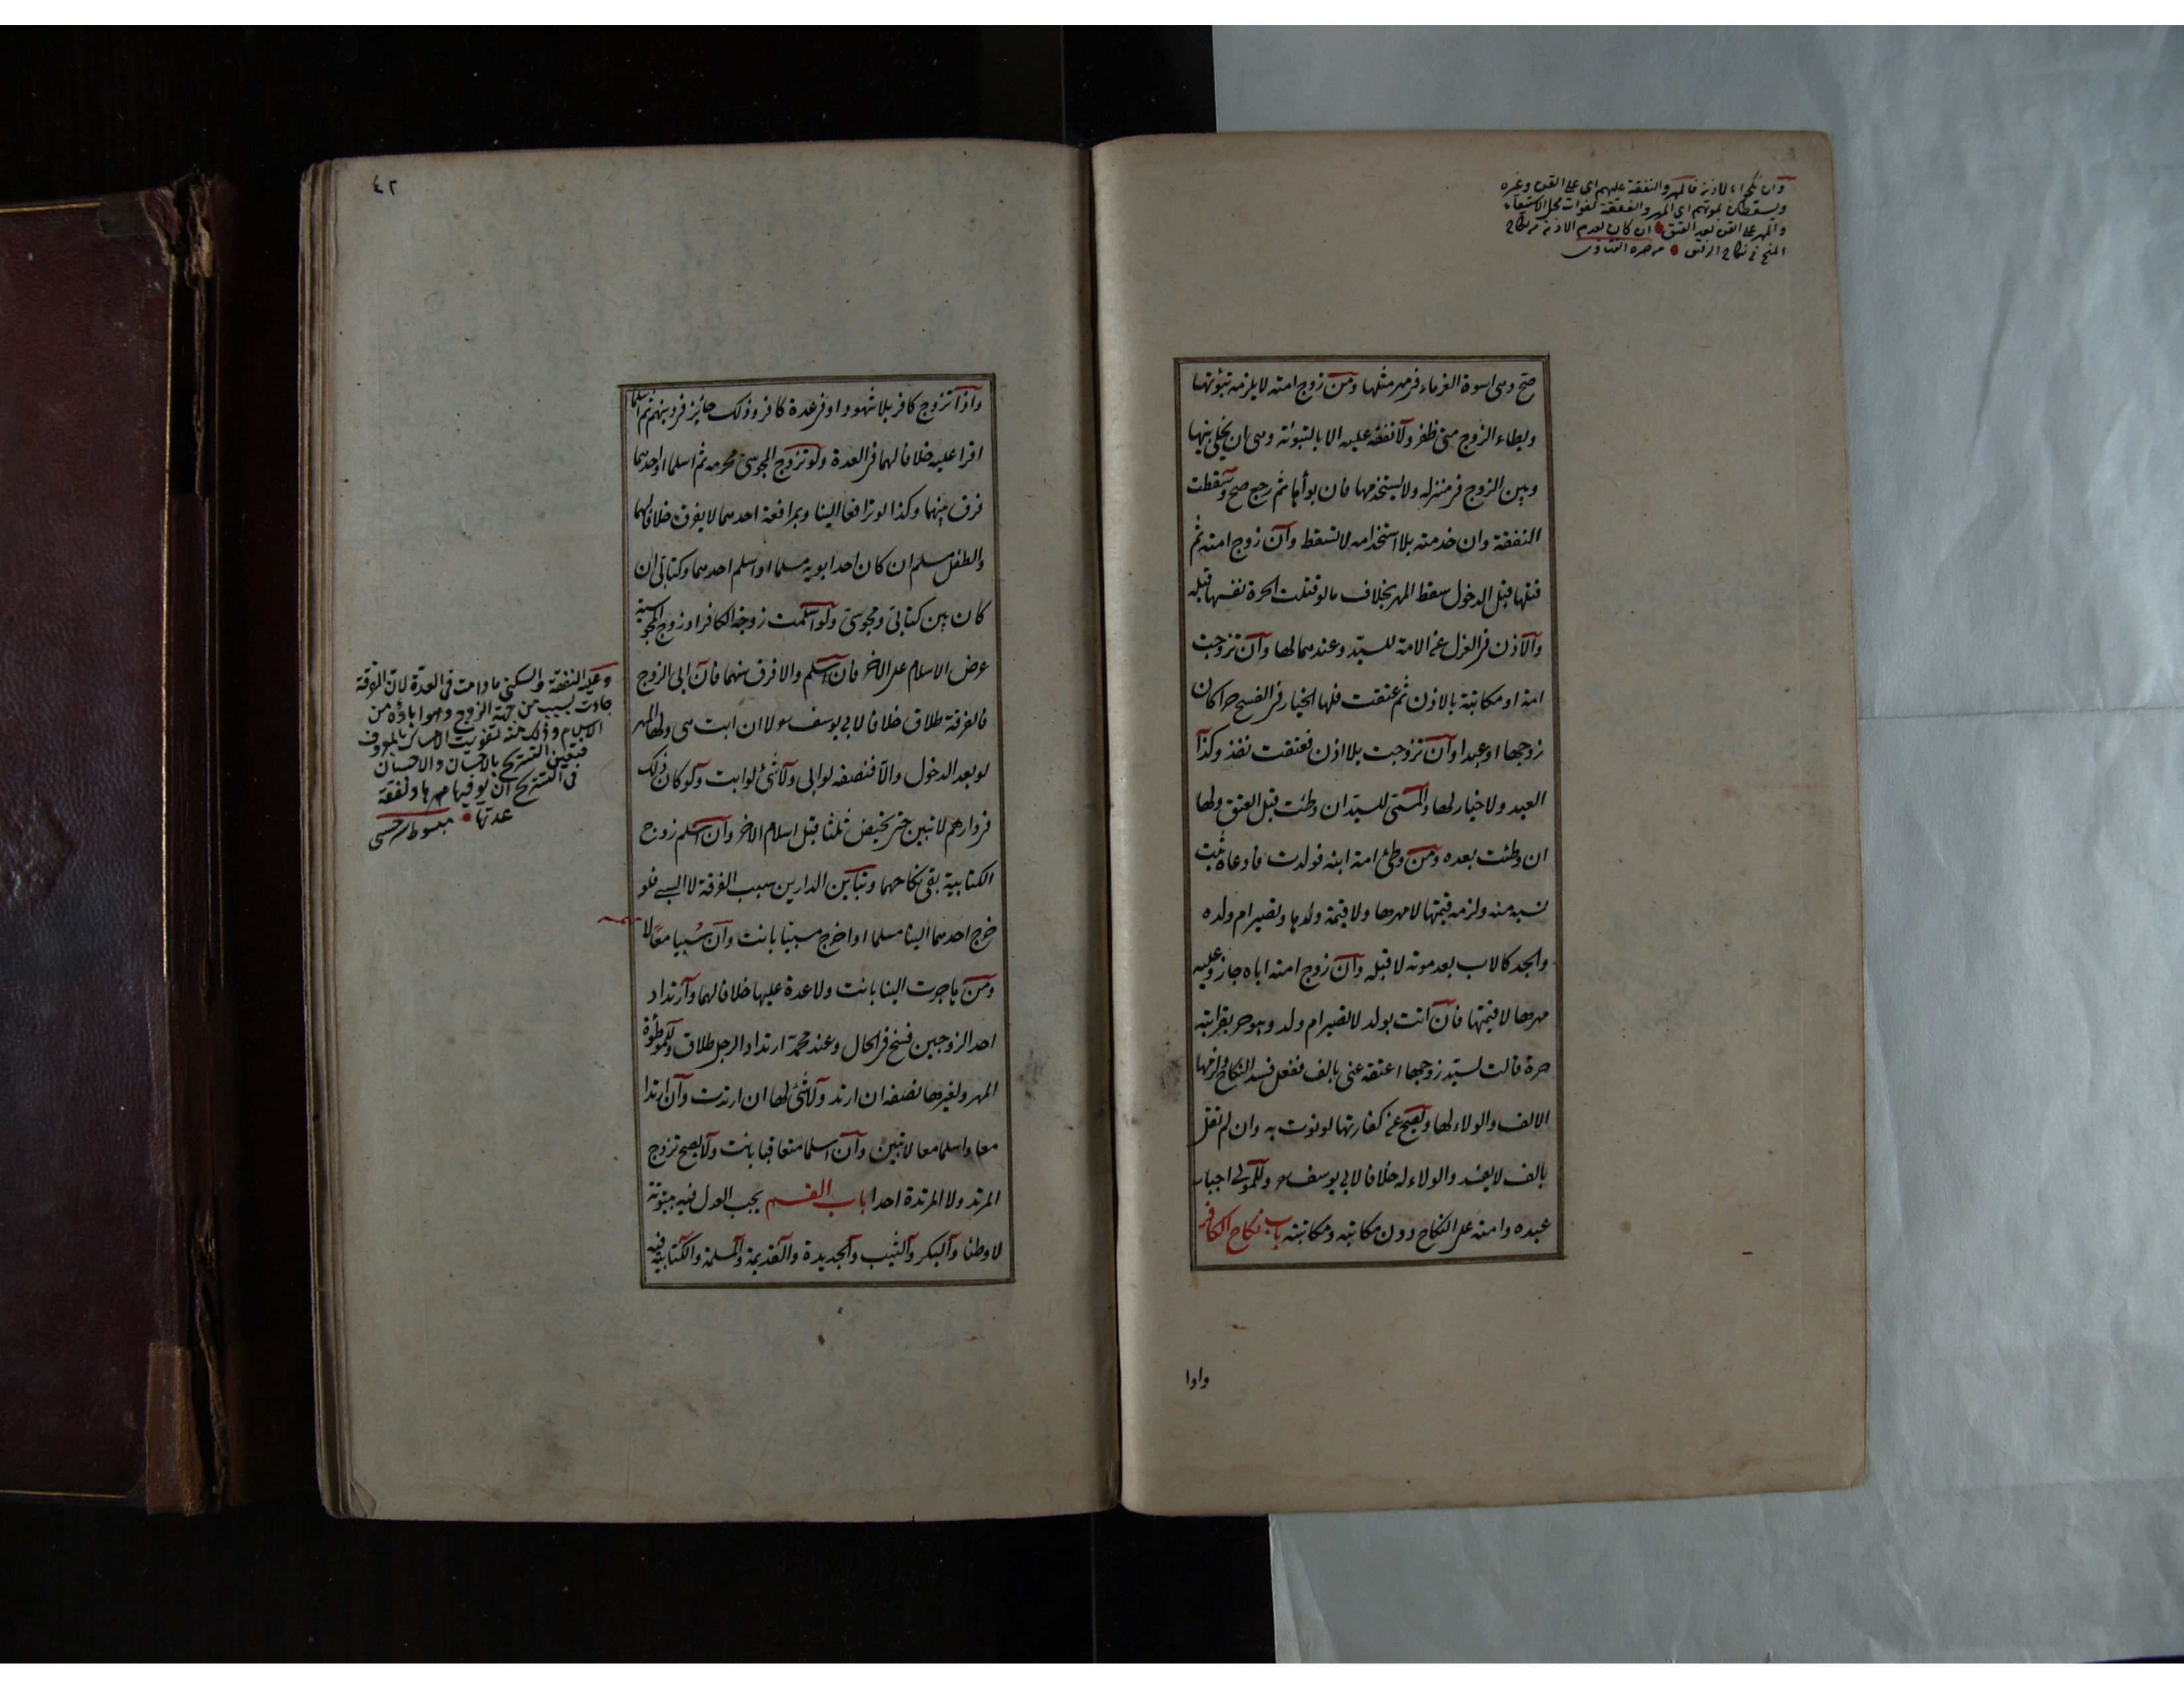 وان نكحوا بالاذن فالمهر والنفقة عليهم اى على القن وغيره
ويسقطان بموتهم اى المهر والنفقة لفوات محل الاستيفاء
والمهر على القن بعد العتق ان كان بعدم الاذن من نكاح
المنح فى نكاح الرقيق
صح وهى اسوة الغرماء فى مهر مثلها ومن زوج امته لا يلزمه تبوئتها
ويطاء الزوج متى ظفر ولا نفقة عليه الا بالتبوئة وهى ان يخلى بينها
وبين الزوج فى منزله ولا يستخدمها فان بوأها ثم رجع صح وسقطت
النفقة وان خدمته بلا استخدامه لا تسقط وان زوج امته ثم
قتلها قبل الدخول سقط المهر بخلاف ما لو قتلت الحرة نفسها قبله
والاذن فى العزل عن الامة للسيد وعندهما لها وان تزوجت
امة او مكاتبة بالاذن ثم عتقت فلها الخيار فى الفسخ حرا كان
زوجها او عبدا وان تزوجت بلا اذن فعتقت نفذ وكذا
العبد ولا خيار لها والمسمى للسيد ان وطئت قبل العتق ولها
ان وطئت بعده ومن وطئ امة ابنه فولدت فادعاه ثبت
نسبه منه ولزمه قيمتها لا مهرها ولا قيمة ولدها وتصير ام ولده
والجد كالاب بعد موته لا قبله وان زوج امته اباه جاز وعليه
مهرها لا قيمتها فان اتت بولد لا تصير ام ولد وهو حر بقرابته
حرة قالت لسيد زوجها اعتقه عنى بالف ففعل فسد النكاح ولزمها
الالف والولاء لها ويصح عن كفارتها لو نوت به وان لم تقل
بالف لا يفسد والولاء له خلافا لابى يوسف وللمولى اجبار
عبده وامته على النكاح دون مكاتبه ومكاتبته باب نكاح الكافر
واذا
٤٢
واذا تزوج كافر بلا شهود او فى عدة كافر وذلك جائز فى دينهم ثم اسلما
اقرا عليه خلافا لهما فى العدة ولو تزوج المجوسى محرمه ثم اسلما او احدهما
فرق بينهما وكذا لو ترافعا الينا وبمرافعة احدهما لا يفرق خلافا لهما
والطفل مسلم ان كان احد ابويه مسلما او اسلم احدهما وكتابى ان
كان بين كتابى ومجوسى ولو اسلمت زوجة الكافر او زوج المجوسية
عرض الاسلام على الاخر فان اسلم والا فرق بينهما فان ابى الزوج
فالفرقة طلاق خلافا لابى يوسف لا ان ابت هى ولها المهر
لو بعد الدخول والا فنصفه لو ابى ولا شئ لو ابت ولو كان ذلك
فى دارهم لا تبين حتى تحيض ثلثا قبل اسلام الاخر وان اسلم زوج
الكتابية بقى نكاحهما وتباين الدارين سبب الفرقة لا السبى فلو
خرج احدهما الينا مسلما او اخرج مسبيا بانت وان سبيا معا لا
ومن هاجرت الينا بانت ولا عدة عليها خلافا لهما وارتداد
احد الزوجين فسخ فى الحال وعند محمد ارتداد الرجل طلاق وللموطوءة
المهر ولغيرها نصفه ان ارتد ولا شئ لها ان ارتدت وان ارتدا
معا واسلما معا لا تبين وان اسلما متعاقبا بانت ولا يصح تزوج
المرتد ولا المرتدة احدا باب القسم يجب العدل فيه بيتوتة
لا وطئا والبكر والثيب والجديدة والقديمة والمسلمة والكتابية فيه
وعليه النفقة والسكنى ما دامت فى العدة لان الفرقة
جاءت بسبب من جهة الزوج وهو اباؤه من
الاسلام وذلك منه تفويت الامساك بالمعروف
فتعين التسريح بالاحسان والاحسان
فى التسريح ان يوفيها مهرها ونفقة
عدتها مبسوط سرخسى